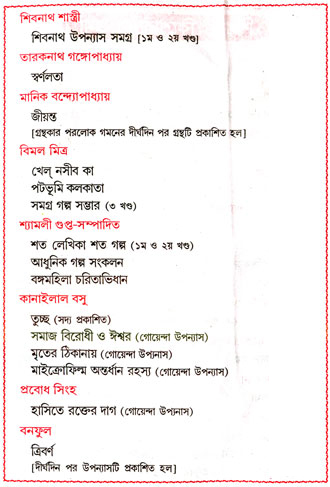 শিবনাথ শাস্ত্রী
শিবনাথ উপন্যাস সমগ্র [১ম ও ২য় খণ্ড]
তারকনাথ গঙ্গোপাধ্যায়
স্বর্ণলতা
মানিক বন্দ্যোপাধ্যায়
জীয়ন্ত
[গ্রন্থকার পরলোক গমনের দীর্ঘদিন পর গ্রন্থটি প্রকাশিত হল]
বিমল মিত্র
খেল্ নসীব কা
পটভূমি কলকাতা
সমগ্র গল্প সম্ভার (৩ খণ্ড)
শ্যামলী গুপ্ত-সম্পাদিত
শত লেখিকা শত গল্প (১ম ও ২য় খণ্ড)
আধুনিক গল্প সংকলন
বঙ্গমহিলা চরিতাভিধান
কানাইলাল বসু
তুচ্ছ (সদ্য প্রকাশিত)
সমাজ বিরোধী ও ঈশ্বর (গোয়েন্দা উপন্যাস)
মৃতের ঠিকানায় (গোয়েন্দা উপন্যাস)
মাইক্রোফিল্ম অন্তর্ধান রহস্য (গোয়েন্দা উপন্যাস)
প্রবোধ সিংহ
হাসিতে রক্তের দাগ (গোয়েন্দা উপন্যাস)
বনফুল
ত্রিবর্ণ
[দীর্ঘদিন পর উপন্যাসটি প্রকাশিত হল]